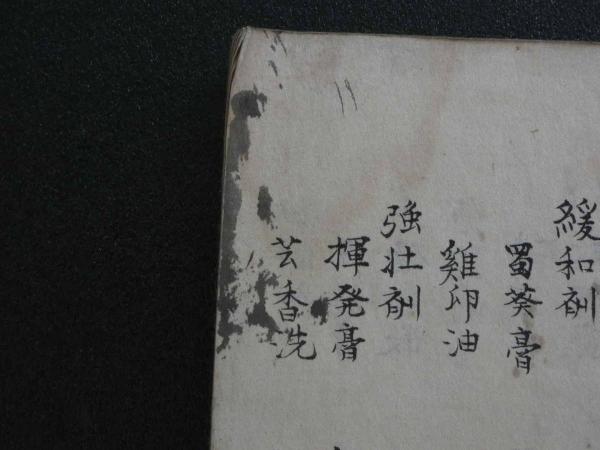 緩和剤
蜀葵膏
雞卵油
強壮剤
揮発膏
芸香洗